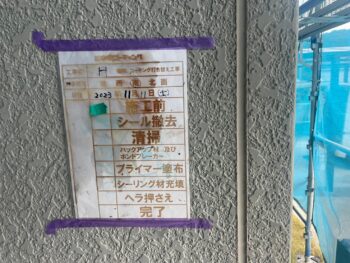 シーリング打替え工事
2023年11月11日(土)
施工前
シール撤去
清掃
バックアップ材 及び
ボンドブレーカー
プライマー塗布
シーリング材充填
ヘラ押さえ
完了